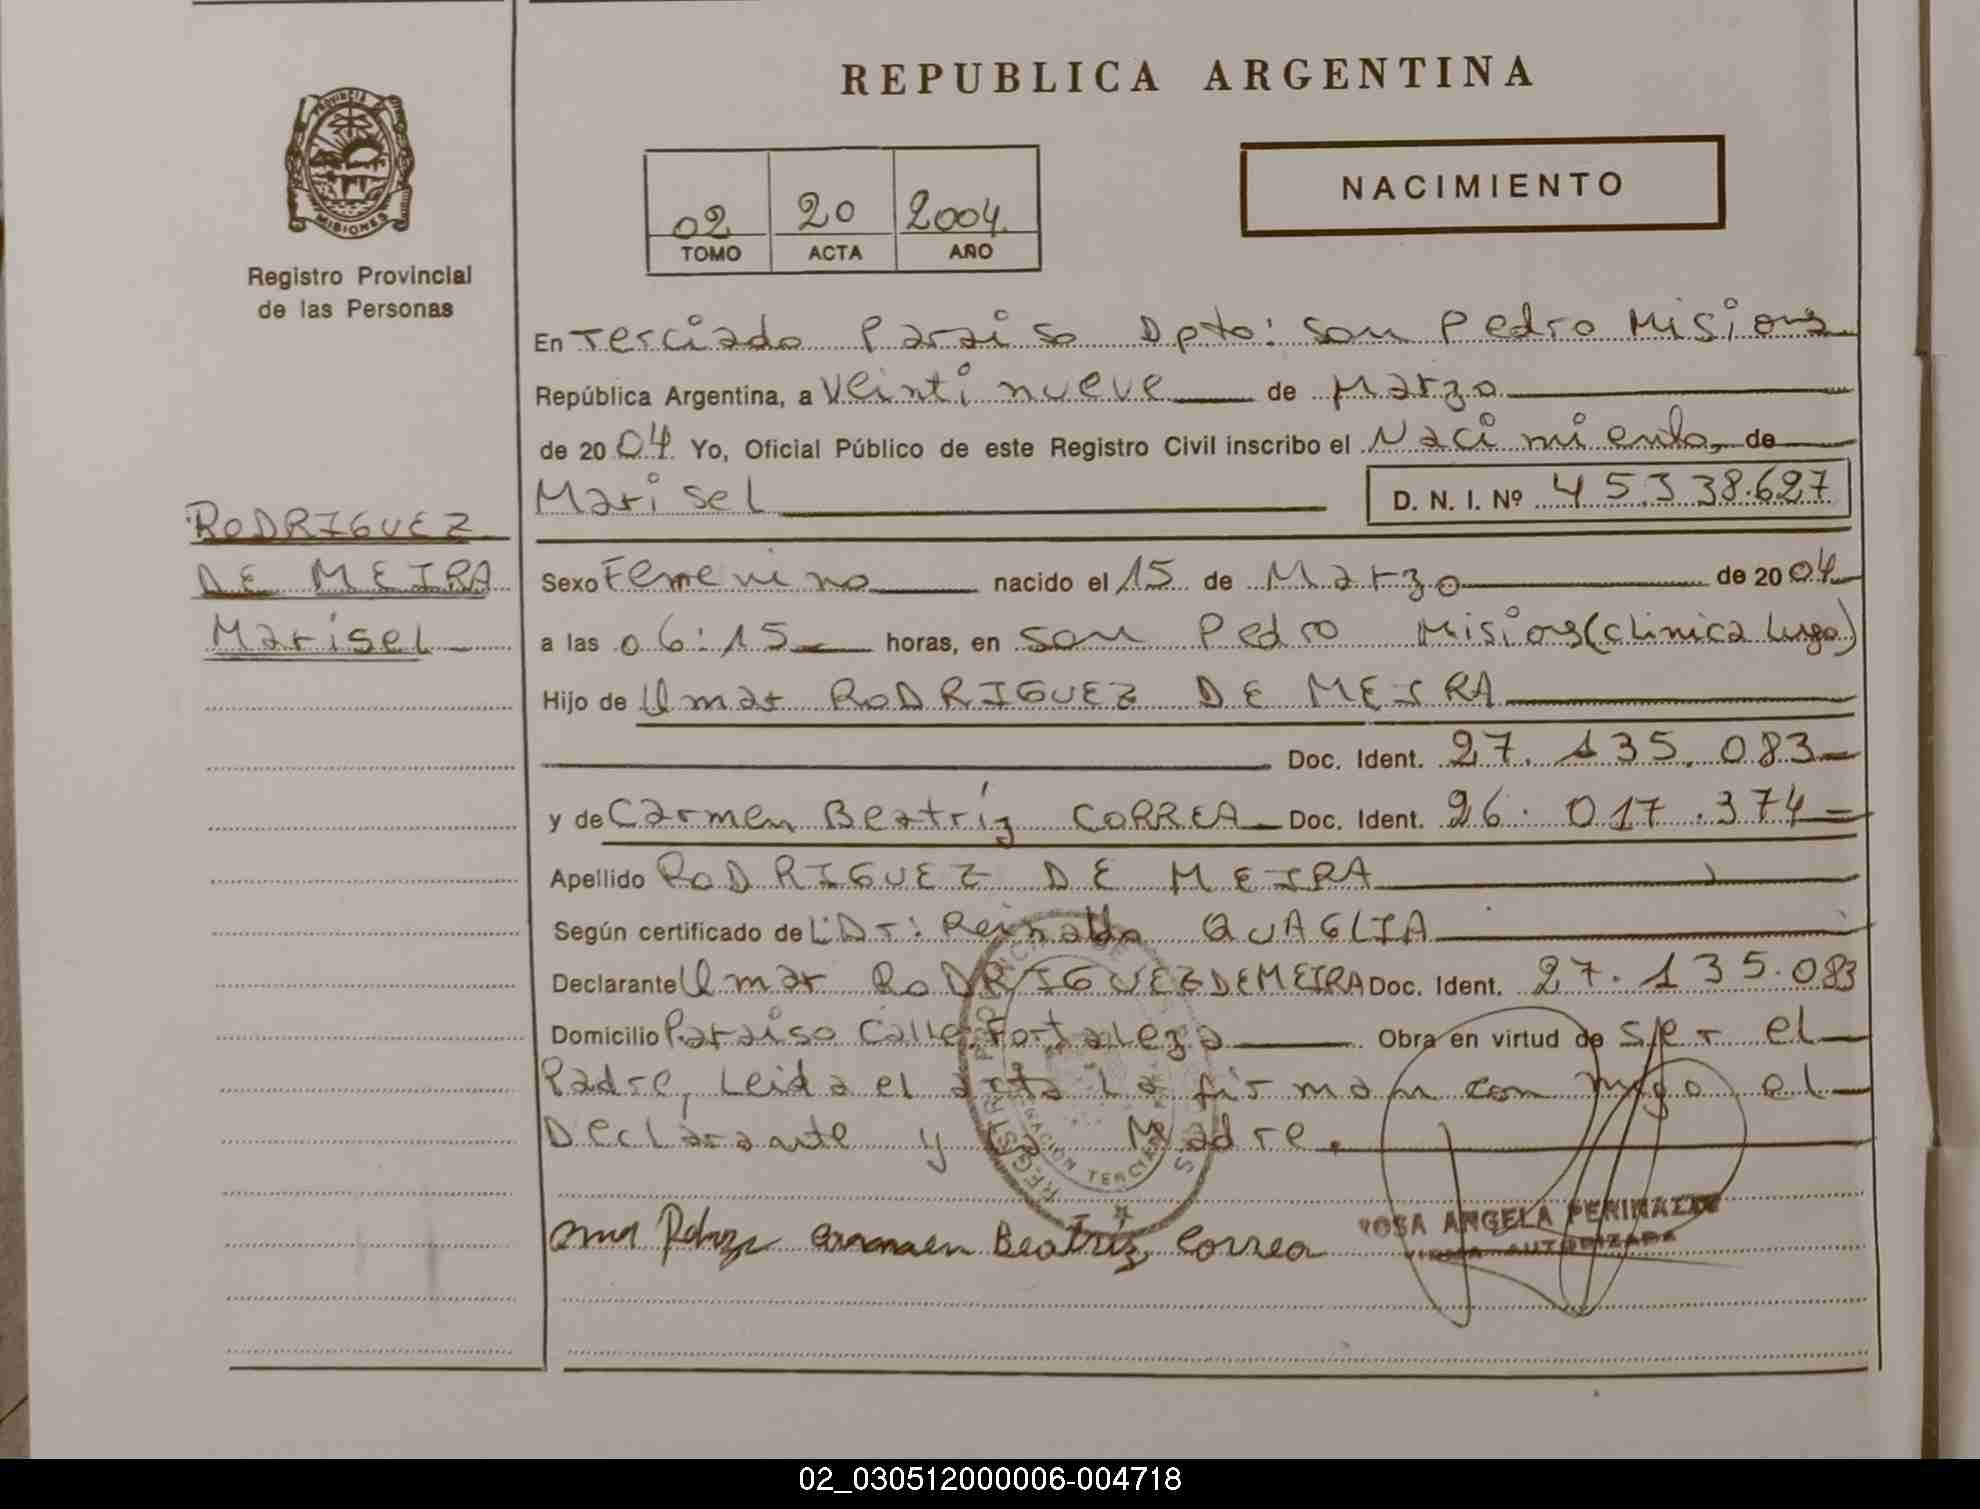 REPUBLICA ARGENTINA
PROVINCIA DE MISIONES
Registro Provincial
de las Personas
NACIMIENTO
02 20 2004
TOMO ACTA AÑO
En Terciado Paraiso Dpto: San Pedro Misiones
República Argentina, a Veinti nueve de Marzo
de 2004 Yo, Oficial Público de este Registro Civil inscribo el Nacimiento, de
Marisel D. N. I. Nº 45.338.627
RODRIGUEZ
DE MEIRA
Marisel
Sexo Femenino nacido el 15 de Marzo de 2004
a las 06:15 horas, en San Pedro Misiones (clinica Lugo)
Hijo de RODRIGUEZ DE MEIRA
Doc. Ident. 27.135.083
y de Carmen Beatríz CORREA Doc. Ident. 26.017.374
Apellido RODRIGUEZ DE MEIRA
Según certificado de L'Dr: Reinaldo QUAGLIA
Declarante RODRIGUEZ DE MEIRA Doc. Ident. 27.135.083
Domicilio Paraiso Calle Fortaleza Obra en virtud de ser el
Padre, Leida el acta La firman con migo el
Declarante y La Madre.
Carmen Beatriz Correa
ROSA ANGELA
FIRMA AUTORIZADA
02_030512000006-004718